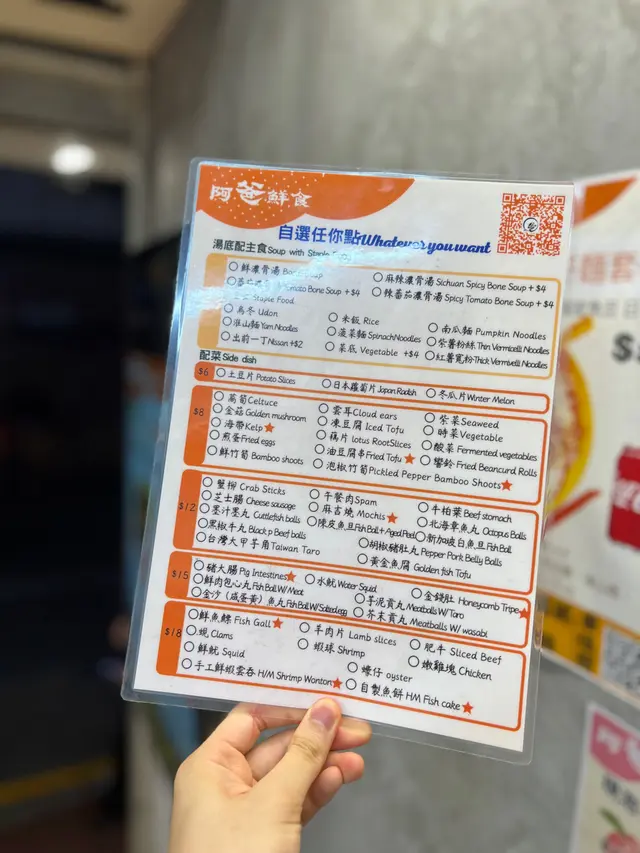 阿爸鮮食
自選任你點Whatever you want
湯底配主食Soup with Staple Food
鮮濃骨湯 Bone Soup
麻辣濃骨湯 Sichuan Spicy Bone Soup +$4
Tomato Bone Soup +$4
辣蕃茄濃骨湯 Spicy Tomato Bone Soup +$4
Staple Food
烏冬 Udon
米飯 Rice
南瓜麵 Pumpkin Noodles
淮山麵 Yam Noodles
菠菜麵 Spinach Noodles
紫薯粉絲 Thin Vermicelli Noodles
出前一丁 Nissan +$2
菜底 Vegetable +$4
紅薯寬粉 Thick Vermivelli Noodles
配菜 Side dish
$6
土豆片 Potato Slices
日本蘿蔔片 Japan Radish
冬瓜片 Winter Melon
$8
萵筍 Celtuce
雲耳 Cloud ears
紫菜 Seaweed
金菇 Golden mushroom
凍豆腐 Iced Tofu
時菜 Vegetable
海帶 Kelp★
藕片 lotus Root Slices
酸菜 Fermented vegetables
煎蛋 Fried eggs
油豆腐串 Fried Tofu★
響鈴 Fried Beancurd Rolls
鮮竹筍 Bamboo shoots
泡椒竹筍 Pickled Pepper Bamboo Shoots★
$12
蟹柳 Crab Sticks
午餐肉 Spam
牛柏葉 Beef stomach
芝士腸 Cheese sausage
麻吉燒 Mochis★
北海章魚丸 Octopus Balls
墨汁墨丸 Cuttlefish balls
陳皮魚旦 Fish Ball + Aged Peel
新加坡白魚旦 Fish Ball
黑椒牛丸 Black p Beef balls
胡椒豬肚丸 Pepper Pork Belly Balls
台灣大甲芋角 Taiwan Taro
黃金魚腐 Golden fish Tofu
$15
豬大腸 Pig Intestines★
水魷 Water Squid
金錢肚 Honeycomb Tripe★
鮮肉包心丸 Fish Ball W/ Meat
芋泥貢丸 Meatballs W/ Taro
金沙(咸蛋黃)魚丸 Fish Ball W/ Salted egg
芥末貢丸 Meatballs W/ wasabi
$18
鮮魚鰾 Fish Gall★
羊肉片 Lamb slices
肥牛 Sliced Beef
蜆 Clams
蝦球 Shrimp
嫩雞塊 Chicken
鮮魷 Squid
蠔仔 oyster
手工鮮蝦雲吞 H/M Shrimp Wonton★
自製魚餅 HM Fish cake★